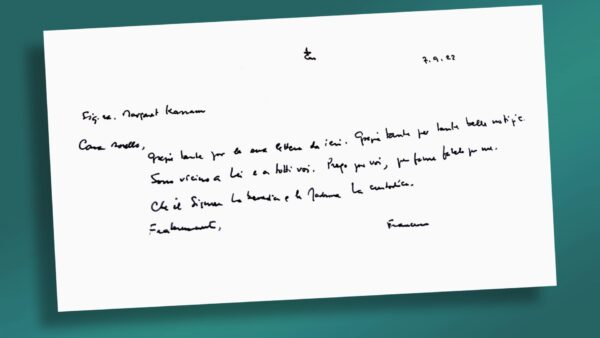 7.9.22
Sig.ra. Margaret Karram
Cara sorella,
Grazie tante per la sua lettera di ieri. Grazie tante per tante belle notizie.
Sono vicino a Lei e a tutti voi. Prego per voi, per favore fatelo per me.
Che il Signore La benedica e la Madonna La custodisca.
Fraternamente,
Francesco